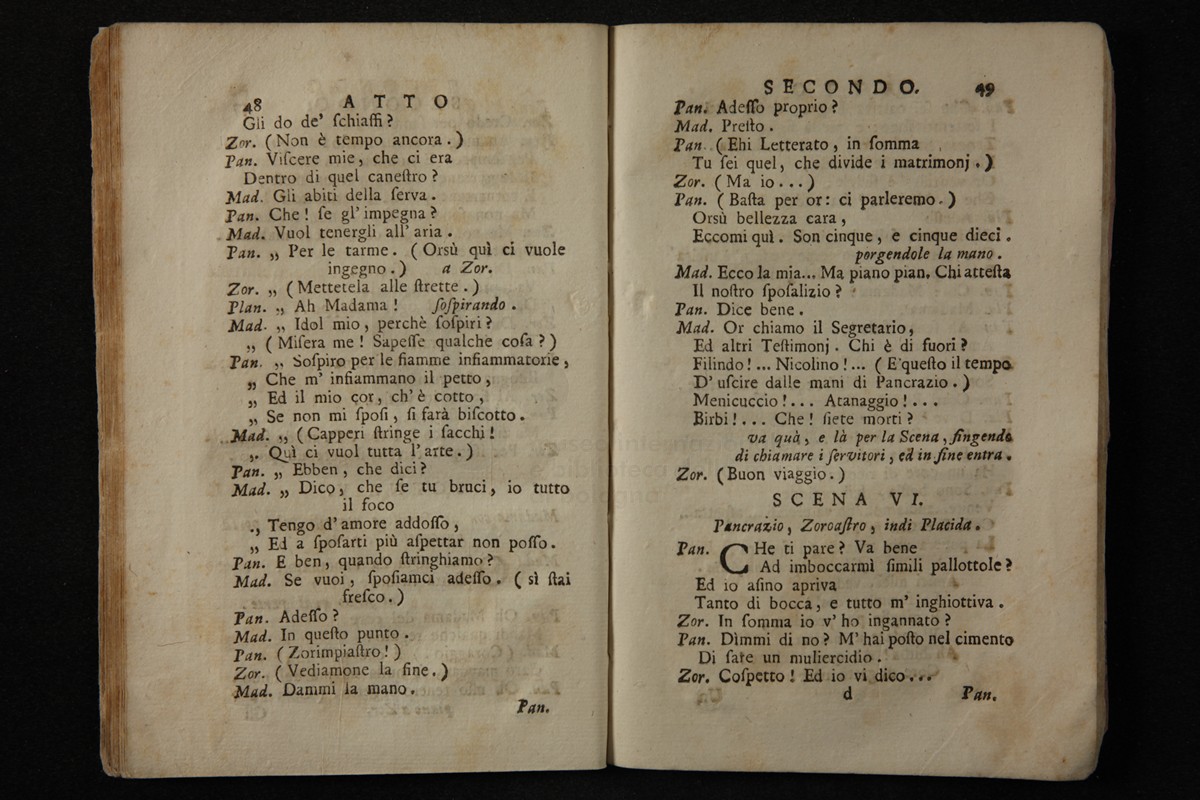 48 ATTO
Gli do de' ſchiaffi?
Zor. (Non è tempo ancora.)
Pan. Viſcere mie, che ci era
Dentro di quel caneſtro?
Mad. Gli abiti della ſerva.
Pan. Che! ſe gl' impegna?
Mad. Vuol tenergli all' aria.
Pan. „ Per le tarme. (Orsù quì ci vuole
ingegno.) a Zor.
Zor. „ (Mettetela alle ſtrette.)
Plan. „ Ah Madama! ſoſpirando.
Mad. „ Idol mio, perchè ſoſpiri?
„ (Miſera me! Sapeſſe qualche coſa?)
Pan. „ Soſpiro per le fiamme infiammatorie,
„ Che m' infiammano il petto,
„ Ed il mio cor, ch' è cotto,
„ Se non mi ſpoſi, ſi farà biſcotto.
Mad. „ (Capperi ſtringe i ſacchi!
„ Quì ci vuol tutta l' arte.)
Pan. „ Ebben, che dici?
Mad. „ Dico, che ſe tu bruci, io tutto
il foco
„ Tengo d' amore addoſſo,
„ Ed a ſpoſarti più aſpettar non poſſo.
Pan. E ben, quando ſtringhiamo?
Mad. Se vuoi, ſpoſiamci adeſſo. (sì ſtai
freſco.)
Pan. Adeſſo?
Mad. In queſto punto.
Pan. (Zorimpiaſtro!)
Zor. (Vediamone la fine.)
Mad. Dammi la mano.
Pan.
SECONDO. 49
Pan. Adeſſo proprio?
Mad. Preſto.
Pan. (Ehi Letterato, in ſomma
Tu ſei quel, che divide i matrimonj.)
Zor. (Ma io...)
Pan. (Baſta per or: ci parleremo.)
Orsù bellezza cara,
Eccomi quì. Son cinque, e cinque dieci.
porgendole la mano.
Mad. Ecco la mia... Ma piano pian. Chi atteſta
Il noſtro ſpoſalizio?
Pan. Dice bene.
Mad. Or chiamo il Segretario,
Ed altri Teſtimonj. Chi è di fuori?
Filindo!... Nicolino!... (E' queſto il tempo
D' uſcire dalle mani di Pancrazio.)
Menicuccio!... Atanaggio!...
Birbi!... Che! ſiete morti?
va quà, e là per la Scena, fingendo
di chiamare i ſervitori, ed in fine entra.
Zor. (Buon viaggio.)
SCENA VI.
Pancrazio, Zoroaſtro, indi Placida.
Pan. CHe ti pare? Va bene
Ad imboccarmi ſimili pallottole?
Ed io aſino apriva
Tanto di bocca, e tutto m' inghiottiva.
Zor. In ſomma io v' ho ingannato?
Pan. Dimmi di no? M' hai poſto nel cimento
Di fare un muliercidio.
Zor. Coſpetto! Ed io vi dico...
d Pan.